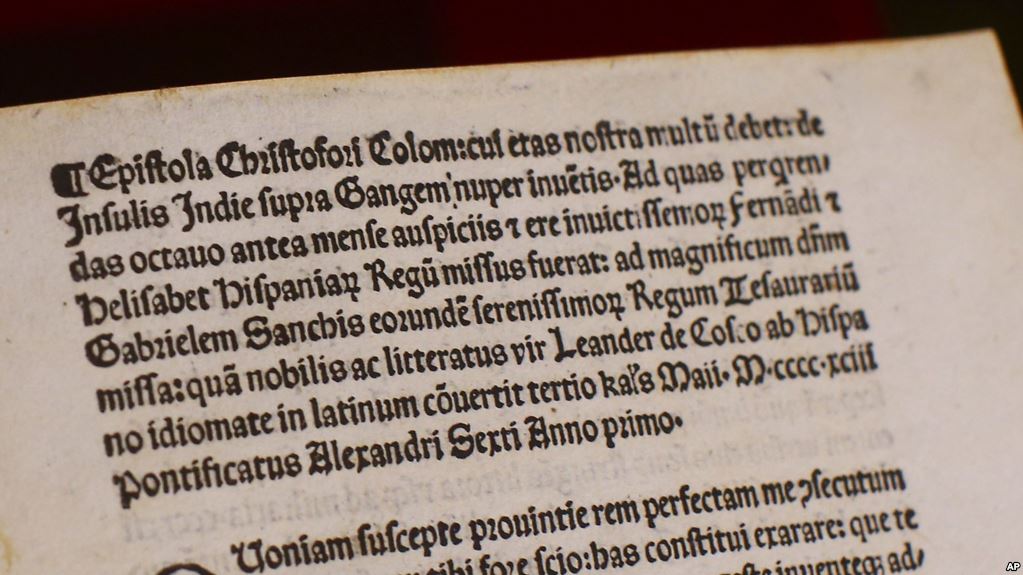 ¶ Epiſtola Chriſtofori Colom: cui etas noſtra multū debet: de
Inſulis Indie ſupra Gangem nuper inuētis. Ad quas perqren/
das octauo antea menſe auſpiciis ⁊ ere inuictiſſemoꝝ Fernādi ⁊
Heliſabet Hiſpaniaꝝ Regū miſſus fuerat: ad magnificum dn̄m
Gabrielem Sanchis eorundē ſereniſſimoꝝ Regum Teſaurariū
miſſa: quā nobilis ac litteratus vir Leander de Coſco ab Hiſpa
no idiomate in latinum cōuertit tertio kal's Maii. M.cccc.xciii
Pontificatus Alexandri Sexti Anno primo.
Quoniam ſuſcepte prouintie rem perfectam me ꝯſecutum
fore ſcio: has conſtitui exarare: que te
inuenteqꝫ ad/
AP